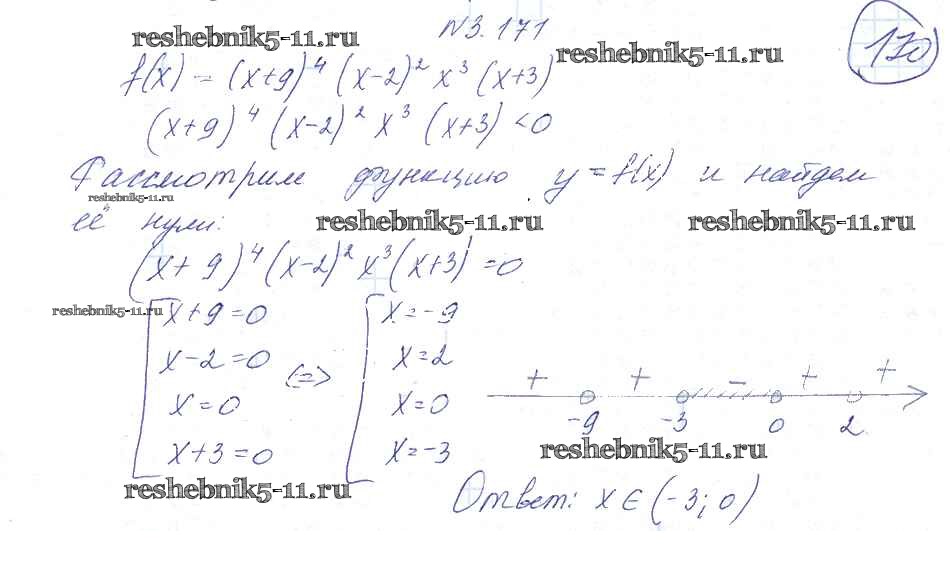 N3.171
reshebnik5-11.ru
reshebnik5-11.ru
170
f(x) = (x+9)⁴ (x-2)² x³ (x+3)
(x+9)⁴ (x-2)² x³ (x+3) < 0
Рассмотрим функцию y = f(x) и найдем
reshebnik5-11.ru
её нули:
reshebnik5-11.ru
reshebnik5-11.ru
(x+9)⁴ (x-2)² x³ (x+3) = 0
reshebnik5-11.ru
[ x+9=0
x-2=0
x=0
x+3=0
<=>
[ x=-9
x=2
x=0
x=-3
+ + - + +
-9 -3 0 2
reshebnik5-11.ru
reshebnik5-11.ru
Ответ: x ∈ (-3; 0)